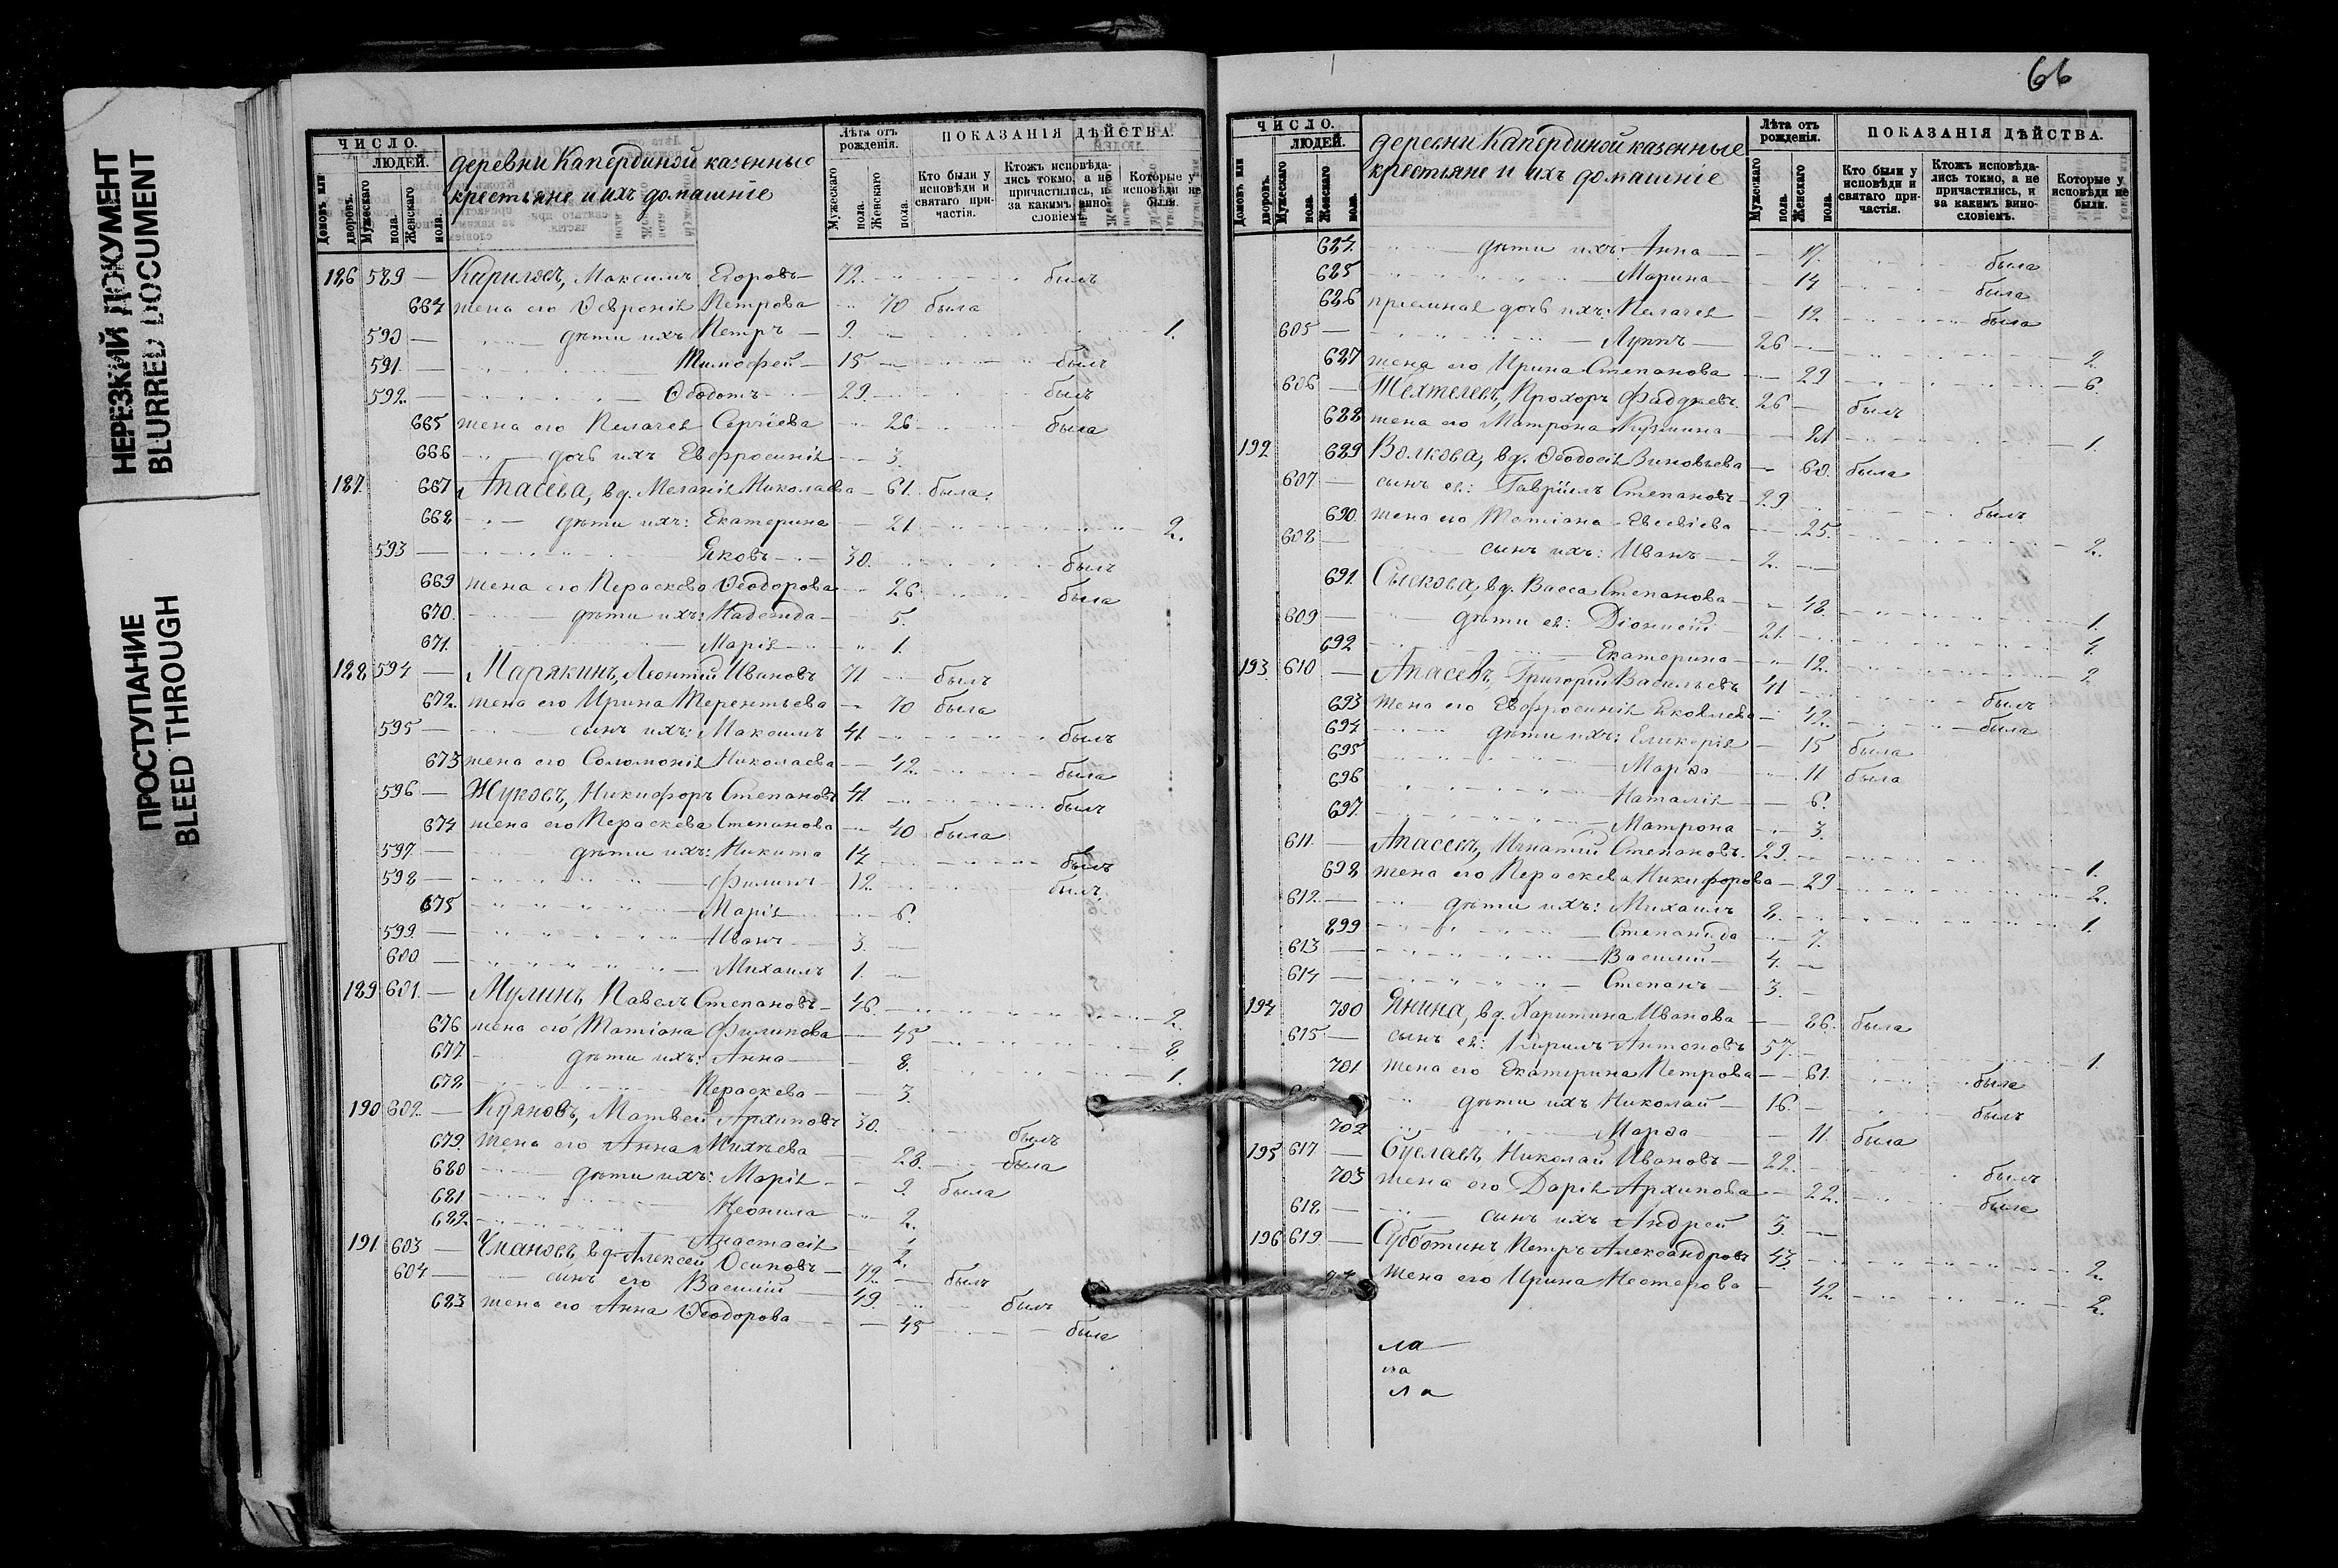 НЕРЕЗКИЙ ДОКУМЕНТ
BLURRED DOCUMENT
ПРОСТУПАНИЕ
BLEED THROUGH
ЧИСЛО.
ЛЮДЕЙ.
Домовъ или дворовъ.
Мужескаго пола.
Женскаго пола.
деревни Капердиной казенные
крестьяне и ихъ домашніе
Лѣта отъ рожденія.
Мужескаго пола.
Женскаго пола.
ПОКАЗАНІЯ ДѢЙСТВА.
Кто были у исповѣди и святаго причастія.
Ктожъ исповѣдались токмо, а не причастились, и за какимъ винословіемъ.
Которые у исповѣди не были.
186 589 — Кириловъ, Максимъ Егоровъ — 72. былъ
664 жена его Ѳевронія Петрова 70 была
590 — дѣти ихъ Петръ — 9. 1.
591. — Тимофей — 15 — былъ
592. — Ѳедотъ — 29. былъ
665 жена его Пелагея Сергіева 26 была
666 дочь ихъ Евфросинія 3.
187. 667 Апасева, вд. Меланія Николаева — 61. была.
668 дѣти ихъ: Екатерина — 21. 2.
593 — Яковъ — 30. былъ
669 жена его Пераскева Ѳеодорова 26 была
670. дѣти ихъ: Надежда — 5.
671. Марія 1.
188 594 — Марякинъ, Леонтій Ивановъ 71 былъ
672. жена его Ирина Терентьева — 70 была
595 — сынъ ихъ: Максимъ 41. былъ
673 жена его Соломонія Николаева — 42. была
596 — Жуковъ, Никифоръ Степановъ 41. былъ
674 жена его Пераскева Степанова — 40 была
597. — дѣти ихъ: Никита 14 былъ
598 — Филипъ 12. былъ.
675 Марія 6.
599. — Иванъ 3. —
600 — Михаилъ 1. —
189 601. — Мулинъ, Павелъ Степановъ — 46. 2.
676 жена его Татіана Филипова — 45 8.
677. дѣти ихъ: Анна — 8. 1.
678 Пераскева — 3.
190 602. — Куяновъ, Матвей Архиповъ 30. былъ
679. жена его Анна Михѣева 28. была
680 дѣти ихъ: Марія 9. была
681 Неонила 2.
682. Анастасія
191 603 — Чмановъ, вд. Алексей Осиповъ — 72. — былъ
604 — сынъ его Василій 49. былъ
683 жена его Анна Ѳеодорова — 45 была
66
ЧИСЛО.
ЛЮДЕЙ.
Домовъ или дворовъ.
Мужескаго пола.
Женскаго пола.
деревни Капердиной казенные
крестьяне и ихъ домашніе
Лѣта отъ рожденія.
Мужескаго пола.
Женскаго пола.
ПОКАЗАНІЯ ДѢЙСТВА.
Кто были у исповѣди и святаго причастія.
Ктожъ исповѣдались токмо, а не причастились, и за какимъ винословіемъ.
Которые у исповѣди не были.
624. дѣти ихъ: Анна — 17. была
625 Марина — 14 была
626 приемная дочь ихъ: Пелагея — 12 была
605 — Луппъ — 26 — 2.
627 жена его Ирина Степанова 29 6.
606 — Шехтелевъ, Прохоръ Фаддѣевъ. 26 — былъ
628 жена его Матрона Кузмина 21 1.
192 629 Волкова, вд. Ѳеодосія Зиновьева — 60. была
607 — сынъ ея: Гавріилъ Степановъ — 29 былъ
690. жена его Татіана Евсевіева 25. 2.
608 — сынъ ихъ: Иванъ — 2. —
691. вд. Васса Степанова — 48. 1.
609 — дѣти ея: Діонисій 21. 4.
692 Екатерина — 12. 2
193. 610 — Апасевъ, Григорій Васильевъ 41 былъ
693 жена его Евфросинія Яковлева — 42. была
694 дѣти ихъ: Гликерія — 15 была
695 Марѳа 11 была
696 Наталія 6.
697. Матрона 3.
611. — Апасевъ, Игнатій Степановъ. 29. 1.
698 жена его Пераскева Никифорова — 29 2.
612. — дѣти ихъ: Михаилъ 8. 1.
899 Степанида 7.
613 — Василій 4. —
614 — Степанъ — 3. —
194 700 Янина, вд. Харитина Иванова — 86. была
615 — сынъ ея: Кирилъ Антоновъ 57. 1.
701 жена его Екатерина Петрова — 61. была
дѣти ихъ Николай 16. — былъ
702 Марѳа — 11. была
195 617 — Буслаевъ, Николай Ивановъ — 22. былъ
703 жена его Дарія Архипова — 22. была
618 — сынъ ихъ Андрей 3. —
196 619. — Субботинъ Петръ Александровъ 43. 2.
жена его Ирина Нестерова — 42. 2.
ла
ла
ла